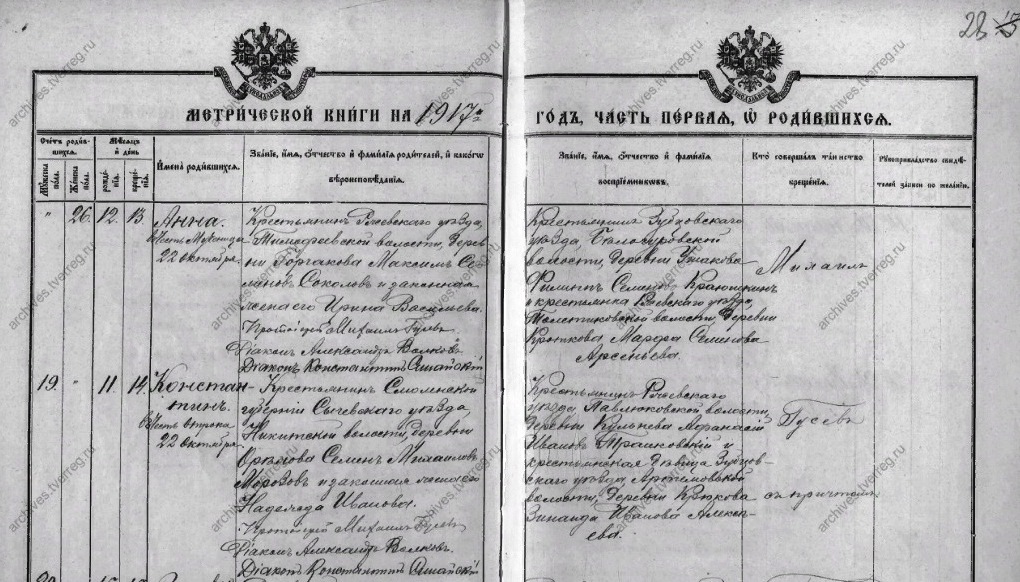 28
МЕТРИЧЕСКОЙ КНИГИ НА 1917 ГОДЪ, ЧАСТЬ ПЕРВАЯ, Ѡ РОДИВШИХСЯ.
Счетъ родившихся.
Мужеска пола.
Женска пола.
Мѣсяцъ и день
рожденія.
крещенія.
Имена родившихся.
Званіе, имя, отчество и фамилія родителей, и какого
вѣроисповѣданія.
Званіе, имя, отчество и фамилія
воспріемниковъ.
Кто совершалъ таинство
крещенія.
Рукоприкладство свидѣтелей записи по желанію.
" 26. 12. 13
Анна.
22 октября.
Крестьянинъ Ржевскаго уѣзда,
Тимофеевской волости, дерев
ни Горчакова Максимъ
Соколовъ и законная
жена его Ирина Васильева.
Протоіерей Михаилъ Гусевъ
Діаконъ Александръ Волковъ
Діаконъ Константинъ
Крестьянинъ Зубцовскаго
уѣзда, волости, деревни
Филиппъ Семеновъ
и крестьянка Ржевскаго уѣзда,
волости, деревни
Крюкова, Марфа Семенова
Арсеньева.
Михаилъ
19. " 11. 14.
Констан-
тинъ.
въ честь отрока
22 октября.
Крестьянинъ Смоленской
губерніи Сычевскаго уѣзда,
Никитской волости, деревни
Семенъ Михаиловъ
Морозовъ и законная жена его
Надежда Иванова.
Протоіерей Михаилъ Гусевъ
Діаконъ Александръ Волковъ.
Діаконъ Константинъ
Крестьянинъ Ржевскаго
уѣзда, Павлюковской волости,
деревни Аѳанасій
Ивановъ и
крестьянская дѣвица Зубцов-
скаго уѣзда, Артемовской
волости, деревни Крюкова
Зинаида Иванова Алексѣ-
ева.
Гусевъ
съ причтомъ
archives.tverreg.ru